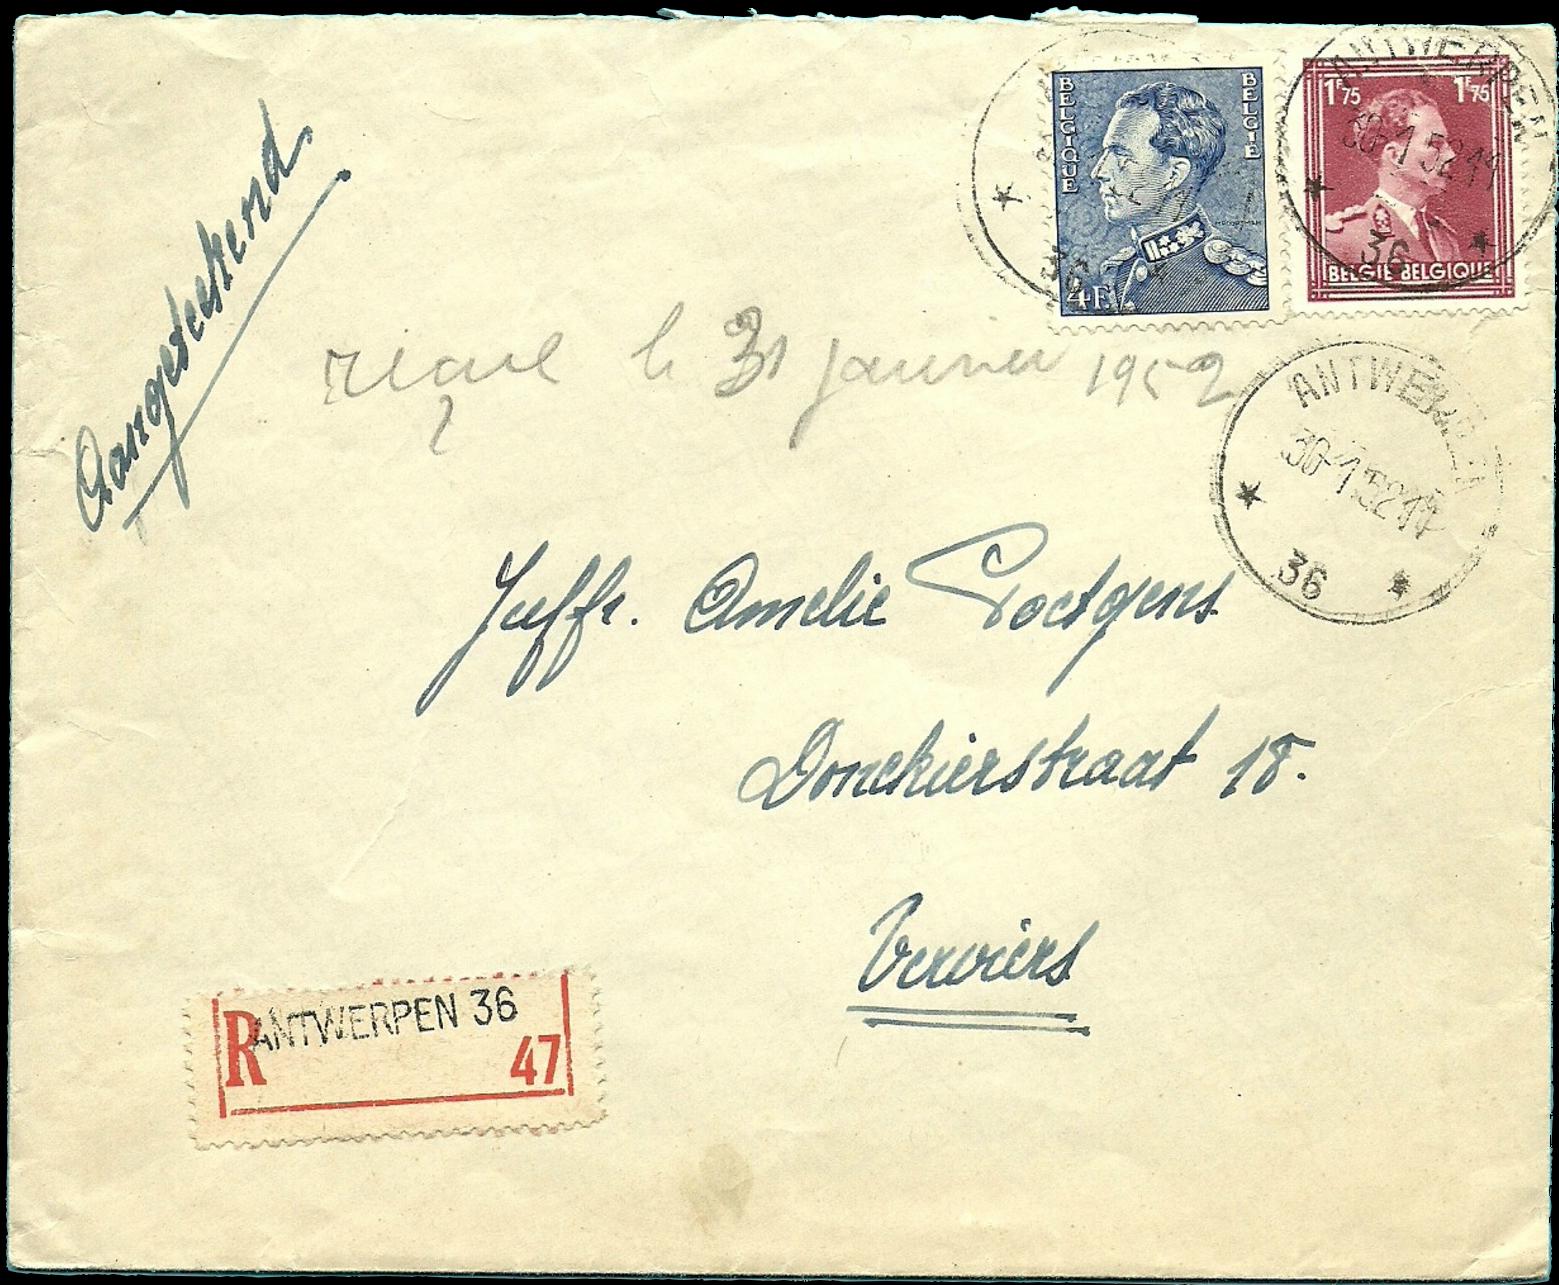 Aangeteekend
BELGIQUE
BELGIË
4F
1F75 1F75
BELGIË-BELGIQUE
ANTWERPEN
30-1 52 11
36
reçue le 31 janvier 1952
ANTWERPEN
30-1 52 11
36
Juffr. Amelie Poetgens
Donckierstraat 18.
Verviers
R ANTWERPEN 36
47